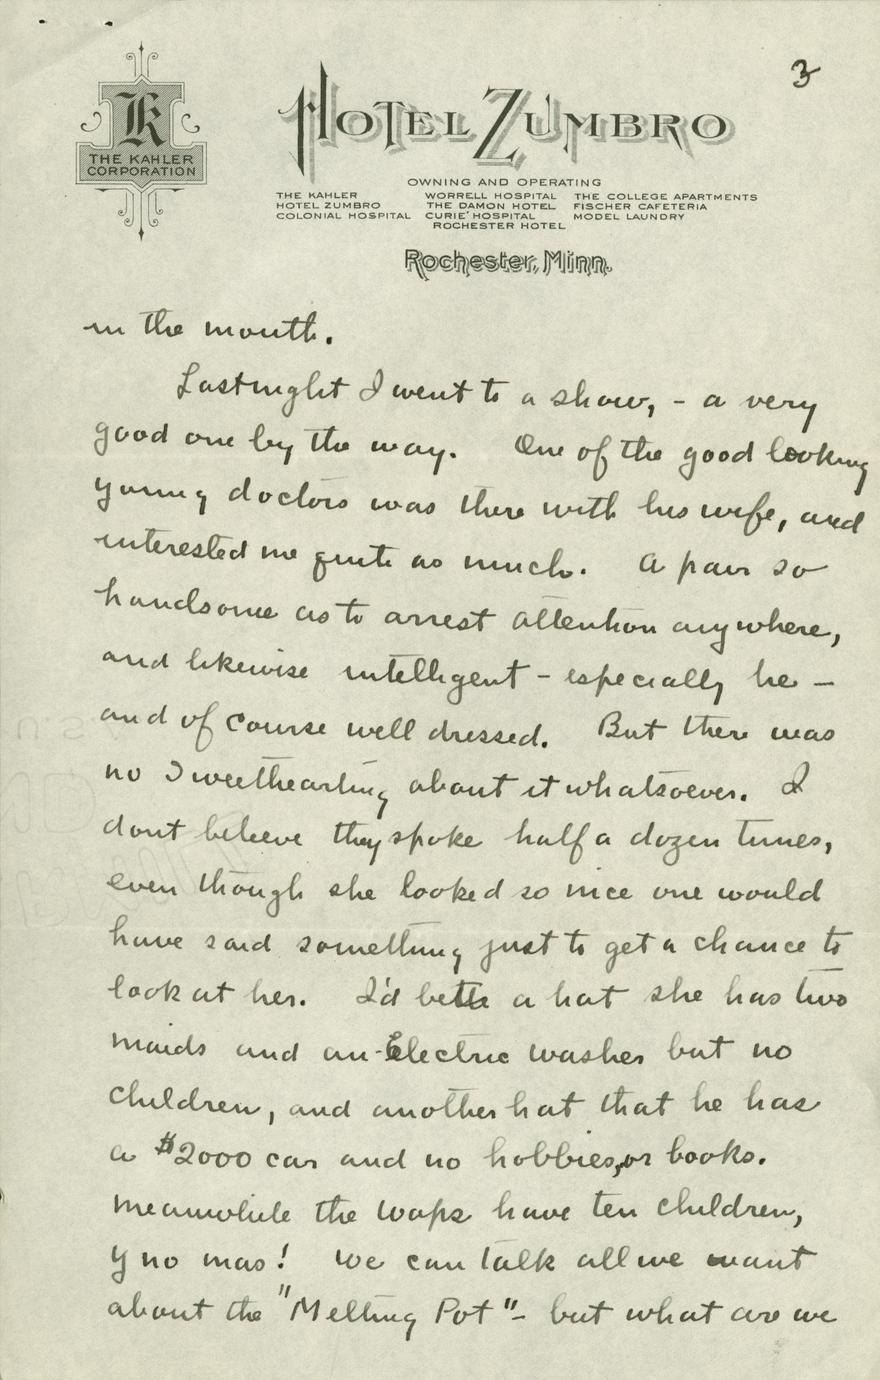 3
K
THE KAHLER
CORPORATION
HOTEL ZUMBRO
OWNING AND OPERATING
THE KAHLER WORRELL HOSPITAL THE COLLEGE APARTMENTS
HOTEL ZUMBRO THE DAMON HOTEL FISCHER CAFETERIA
COLONIAL HOSPITAL CURIE' HOSPITAL MODEL LAUNDRY
ROCHESTER HOTEL
Rochester, Minn.
in the month.
Last night I went to a show, - a very
good one by the way. One of the good looking
young doctors was there with his wife, and
interested me quite as much. A pair so
handsome as to arrest attention anywhere,
and likewise intelligent - especially he -
and of course well dressed. But there was
no sweethearting about it whatsoever. I
dont believe they spoke half a dozen times,
even though she looked so nice one would
have said something just to get a chance to
look at her. I'd bet a hat she has two
maids and an Electric washer but no
children, and another hat that he has
a $2000 car and no hobbies, or books.
Meanwhile the wops have ten children,
y no mas! We can talk all we want
about the "Melting Pot" - but what are we